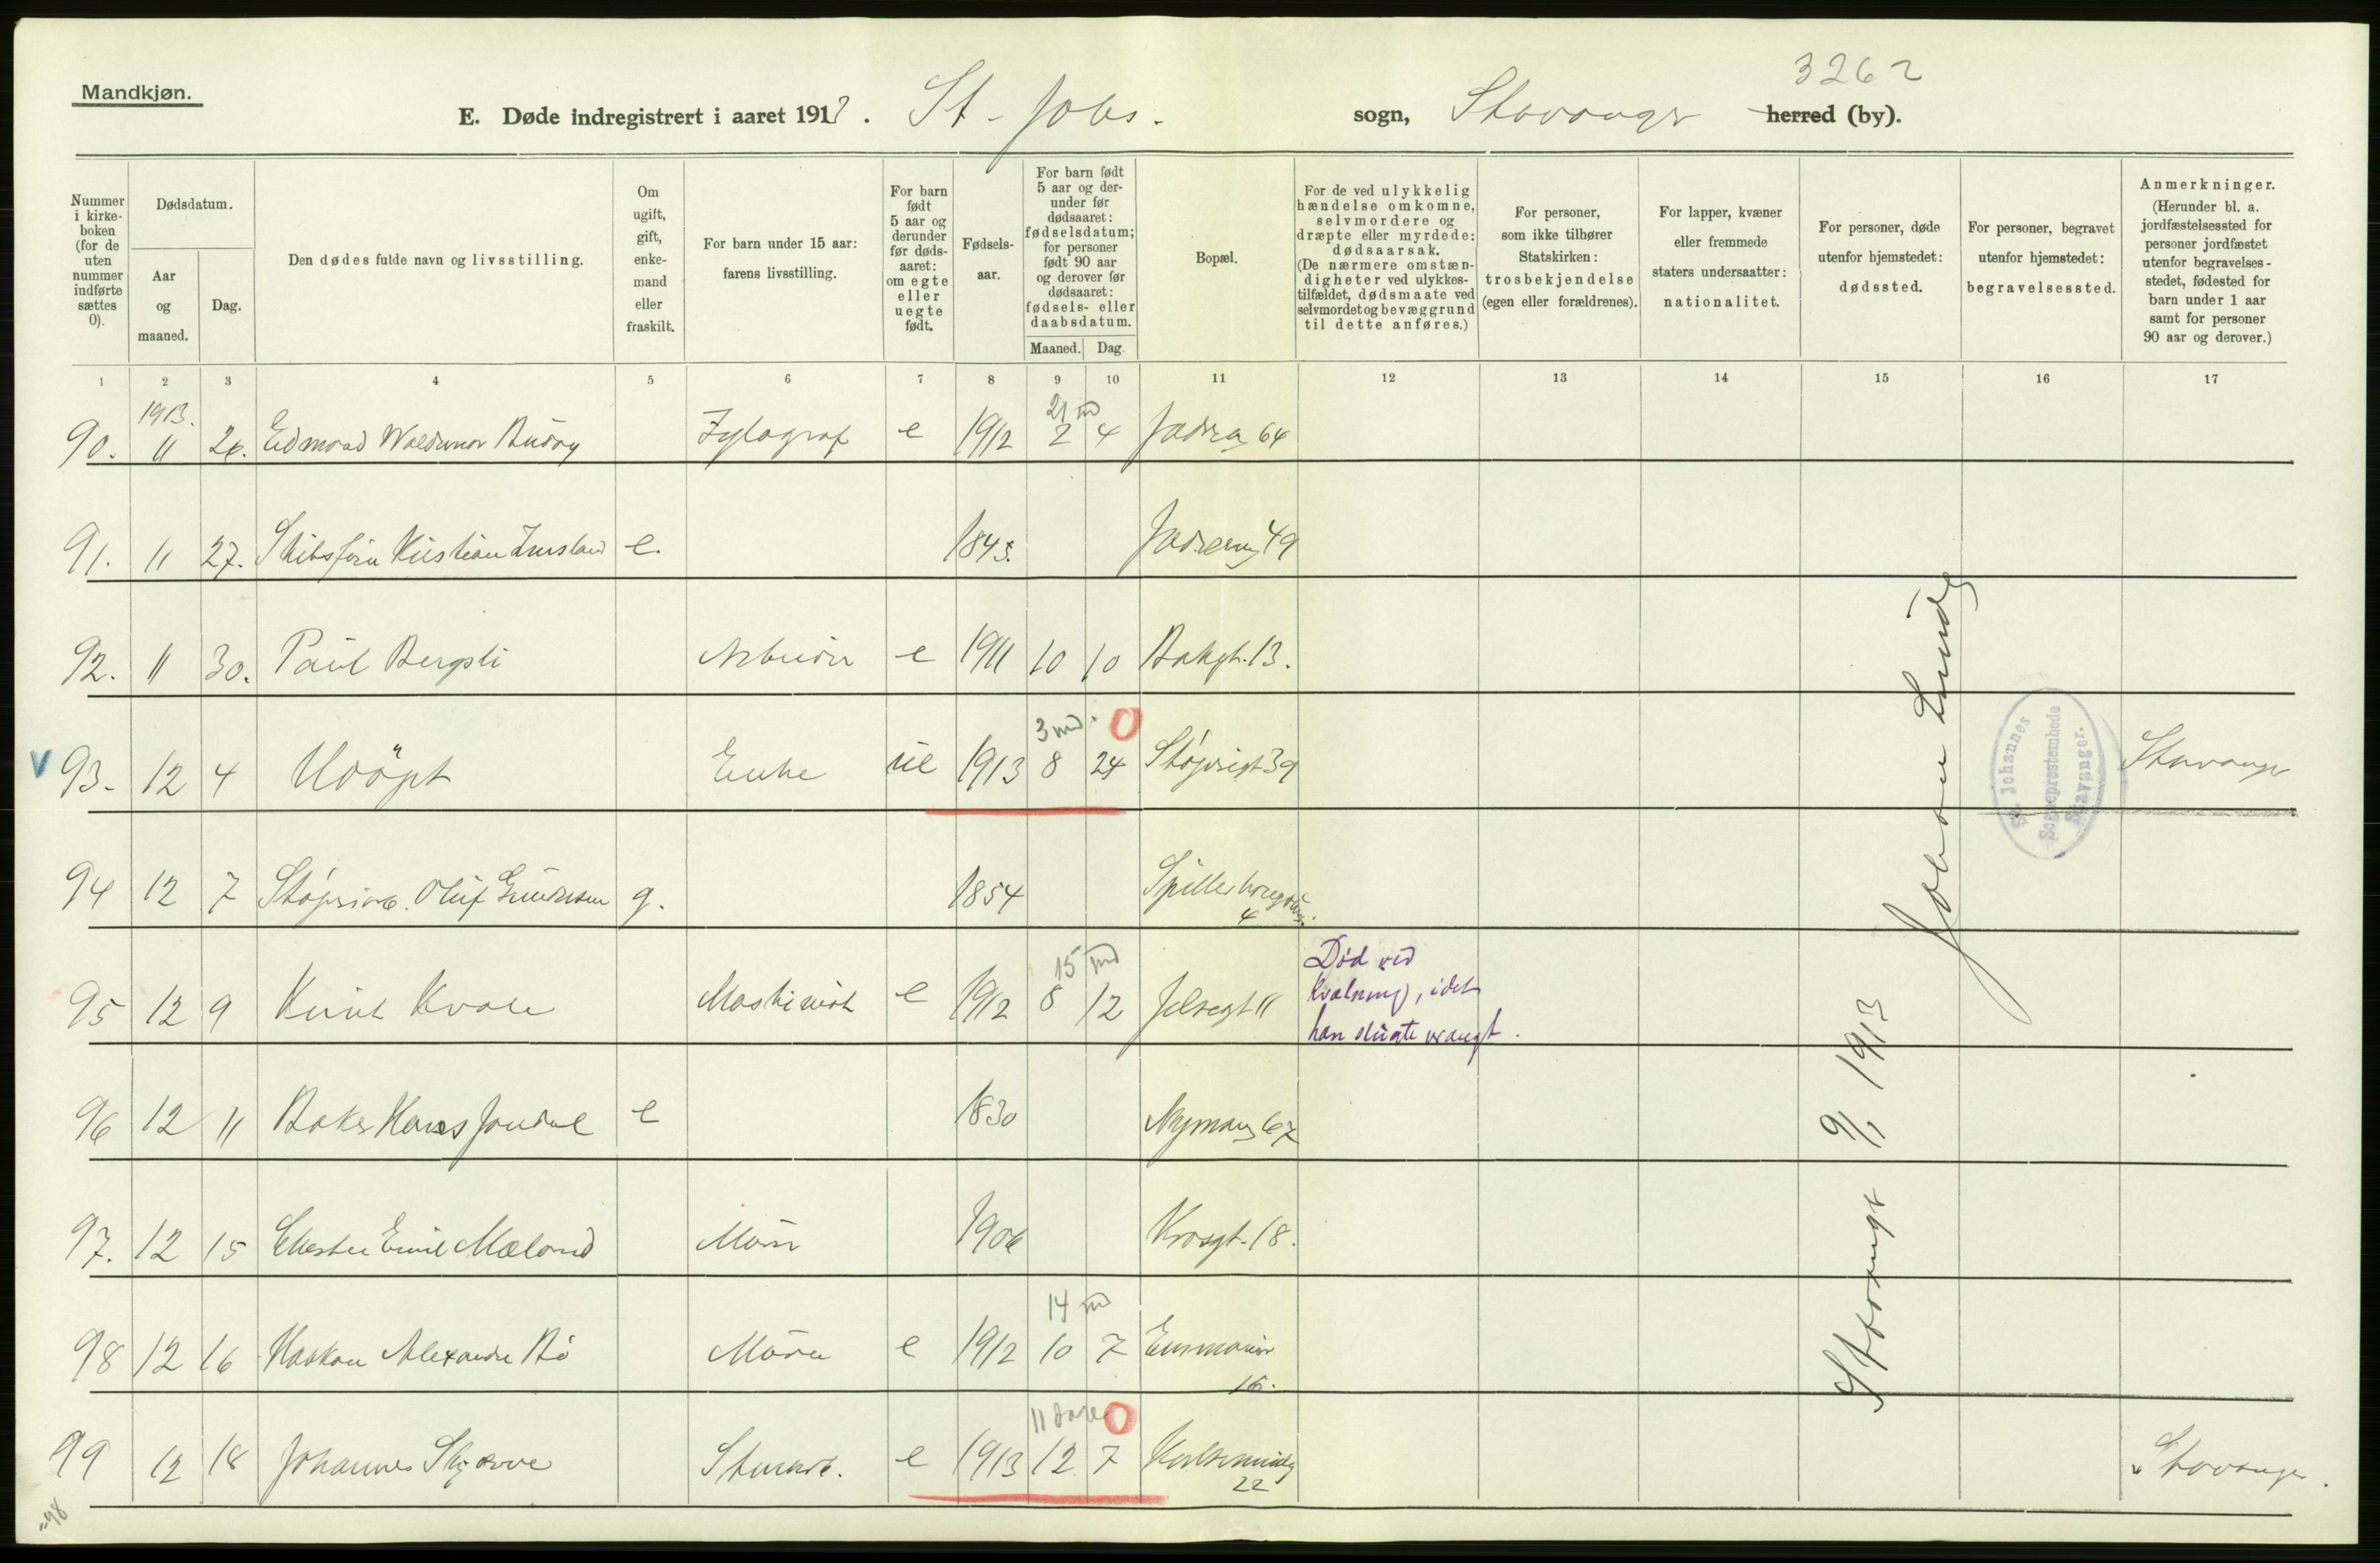 3262
Mandkjøn.
E. Døde indregistrert i aaret 1913. St. Johs. sogn, Stavanger herred (by).
Nummer i kirkeboken (for de uten nummer indførte sættes 0).
Dødsdatum.
Aar og maaned.
Dag.
Den dødes fulde navn og livsstilling.
Om ugift, gift, enkemand eller fraskilt.
For barn under 15 aar: farens livsstilling.
For barn født 5 aar og derunder før dødsaaret: om egte eller uegte født.
Fødselsaar.
For barn født 5 aar og derunder før dødsaaret: fødselsdatum; for personer født 90 aar og derover før dødsaaret: fødsels- eller daabsdatum.
Maaned. Dag.
Bopæl.
For de ved ulykkelig hændelse omkomne, selvmordere og dræpte eller myrdede: dødsaarsak. (De nærmere omstændigheter ved ulykkestilfældet, dødsmaate ved selvmordet og bevæggrund til dette anføres.)
For personer, som ikke tilhører Statskirken: trosbekjendelse (egen eller forældrenes).
For lapper, kvæner eller fremmede staters undersaatter: nationalitet.
For personer, døde utenfor hjemstedet: dødssted.
For personer, begravet utenfor hjemstedet: begravelsessted.
Anmerkninger. (Herunder bl. a. jordfæstelsessted for personer jordfæstet utenfor begravelsesstedet, fødested for barn under 1 aar samt for personer 90 aar og derover.)
1 2 3 4 5 6 7 8 9 10 11 12 13 14 15 16 17
1913. 21 md
90. 11 26. Edmond Waldemar Zylograf e 1912 2 4 64
91. 11 27. Kristian Imsland e. 1843. 49
92. 11 30. Paul Bergsli Arbeider e 1911 10 10 Bakgt. 13.
3 md. 0
V 93. 12 4 Udöpt Enke ue 1913 8 24 39 Stavanger
94 12 7 Oluf Gundersen g. 1854
4
15 md Død ved
95 12 9 Knut Kvale Maskinist e 1912 8 12 Jelsegt 11 kvælning, idet
han slugte vrangt.
96 12 11 Baker Hans e 1830 Nymansg 67
97. 12 15 Chester Emil Mæland Murer 1906 Krosgt. 18.
14 md
98 12 16 Haakon Alexander Bø Murer e 1912 10 7
16.
11 dage 0
99 12 18 Johannes e 1913 12 7 Stavanger.
22
=98
Stavanger 9/1 1913 Johan Lunde
St. Johannes
Sogneprestembede
Stavanger.